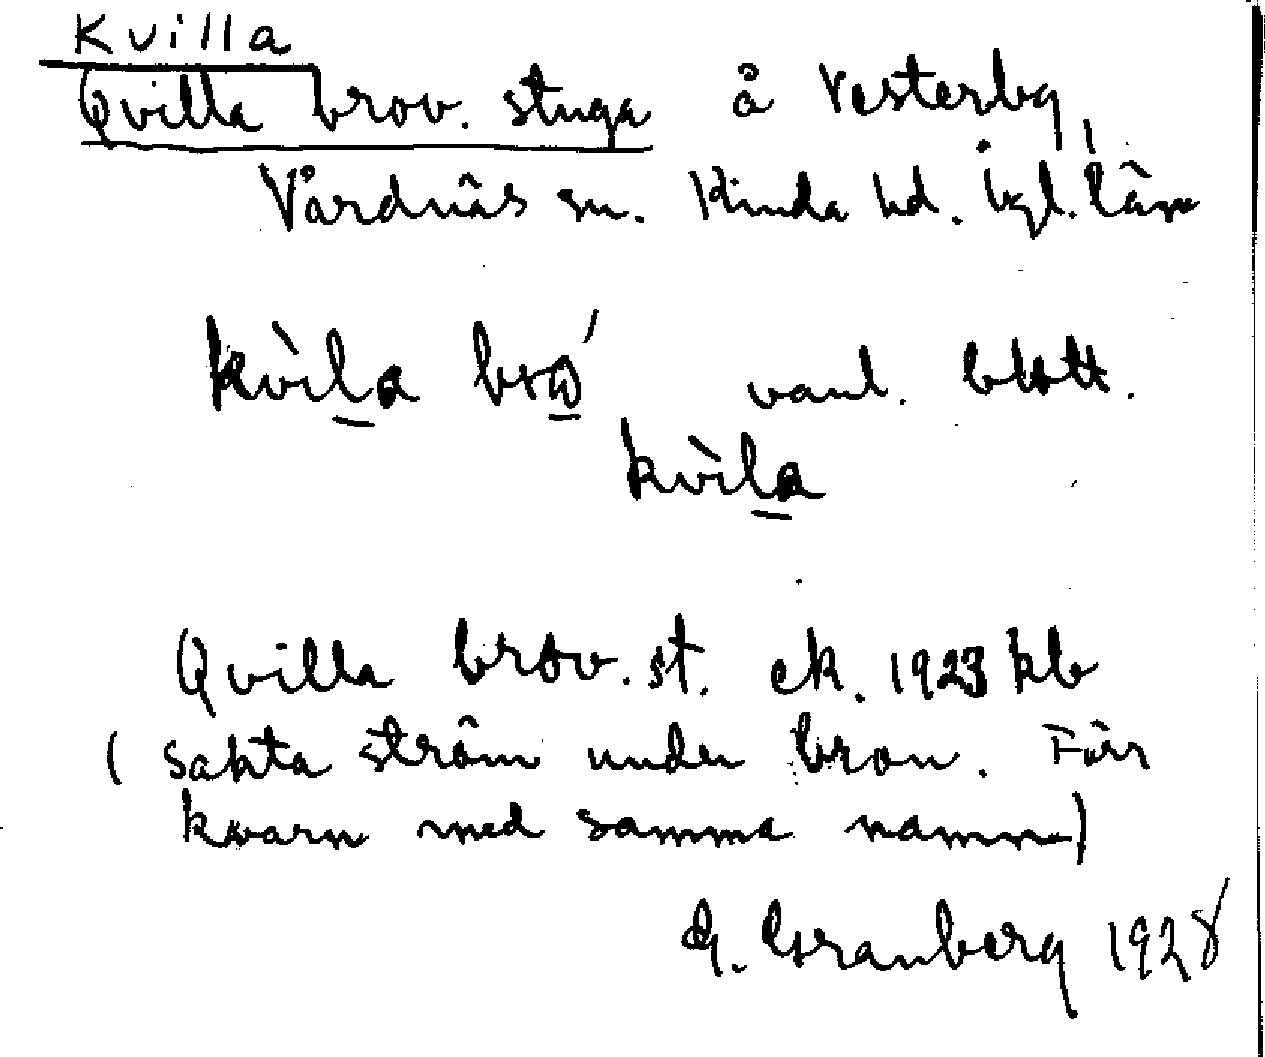 Kvilla
Qvilla brov. stuga å Vesterby,
Vårdnäs sn. Kinda hd. Ögl. län
kv̀ila brώ vanl. blott.
kv̀ila
Qvilla brov. st. ek. 1923 kb
( sakta ström under bron. Förr
kvarn med samma namn)
G. Granberg 1928